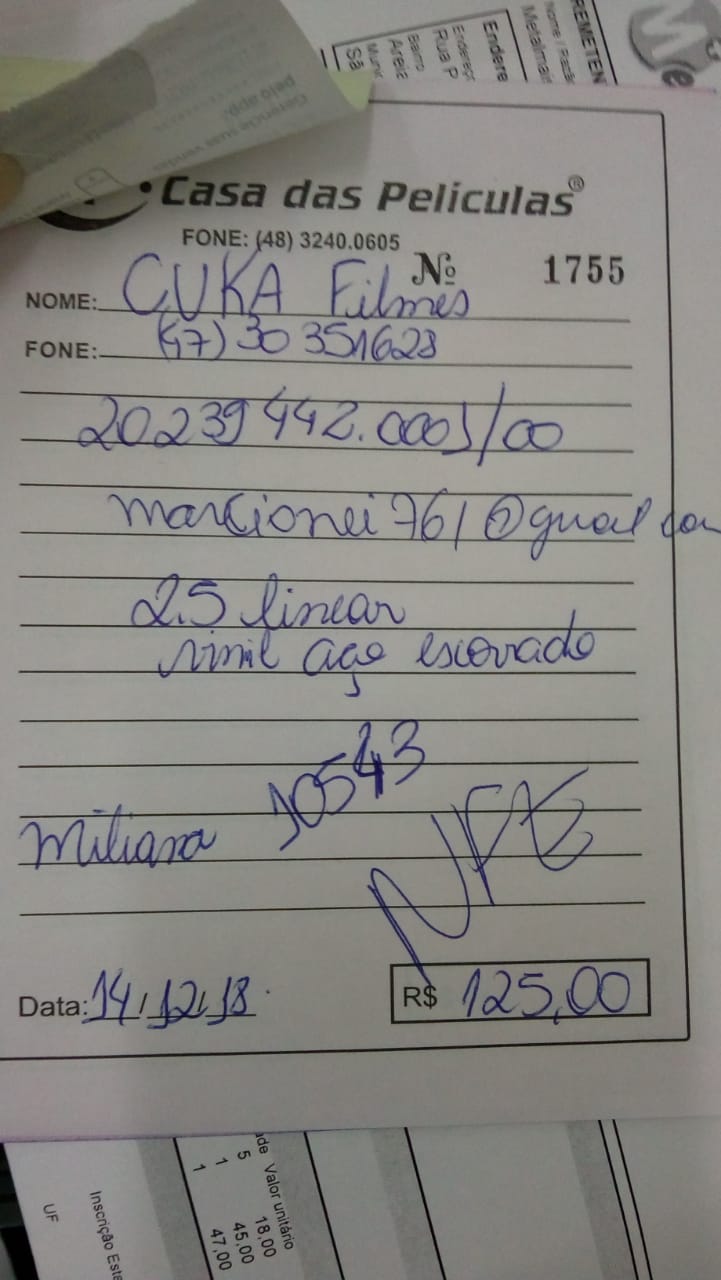 REMETEN
Nome / Razã
Metalmai
Endere
Endereç
Rua P
Bairro
Areia
Muni
Sã
pelo app:
Gerencie suas vendas
Casa das Películas®
FONE: (48) 3240.0605
Nº 1755
NOME: CUKA Filmes
FONE: (47) 30351623
20239442.0001/00
marcionei761@gmail.com
2.5 linear
vinil aço escovado
10543
Miliana
NFE
Data: 14/12/18.
R$ 125,00
ade Valor unitário
5 18,00
1 45,00
1 47,00
Inscrição Esta
UF